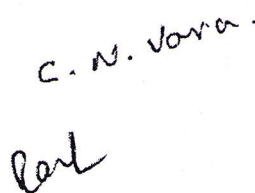 C. N. Vora.